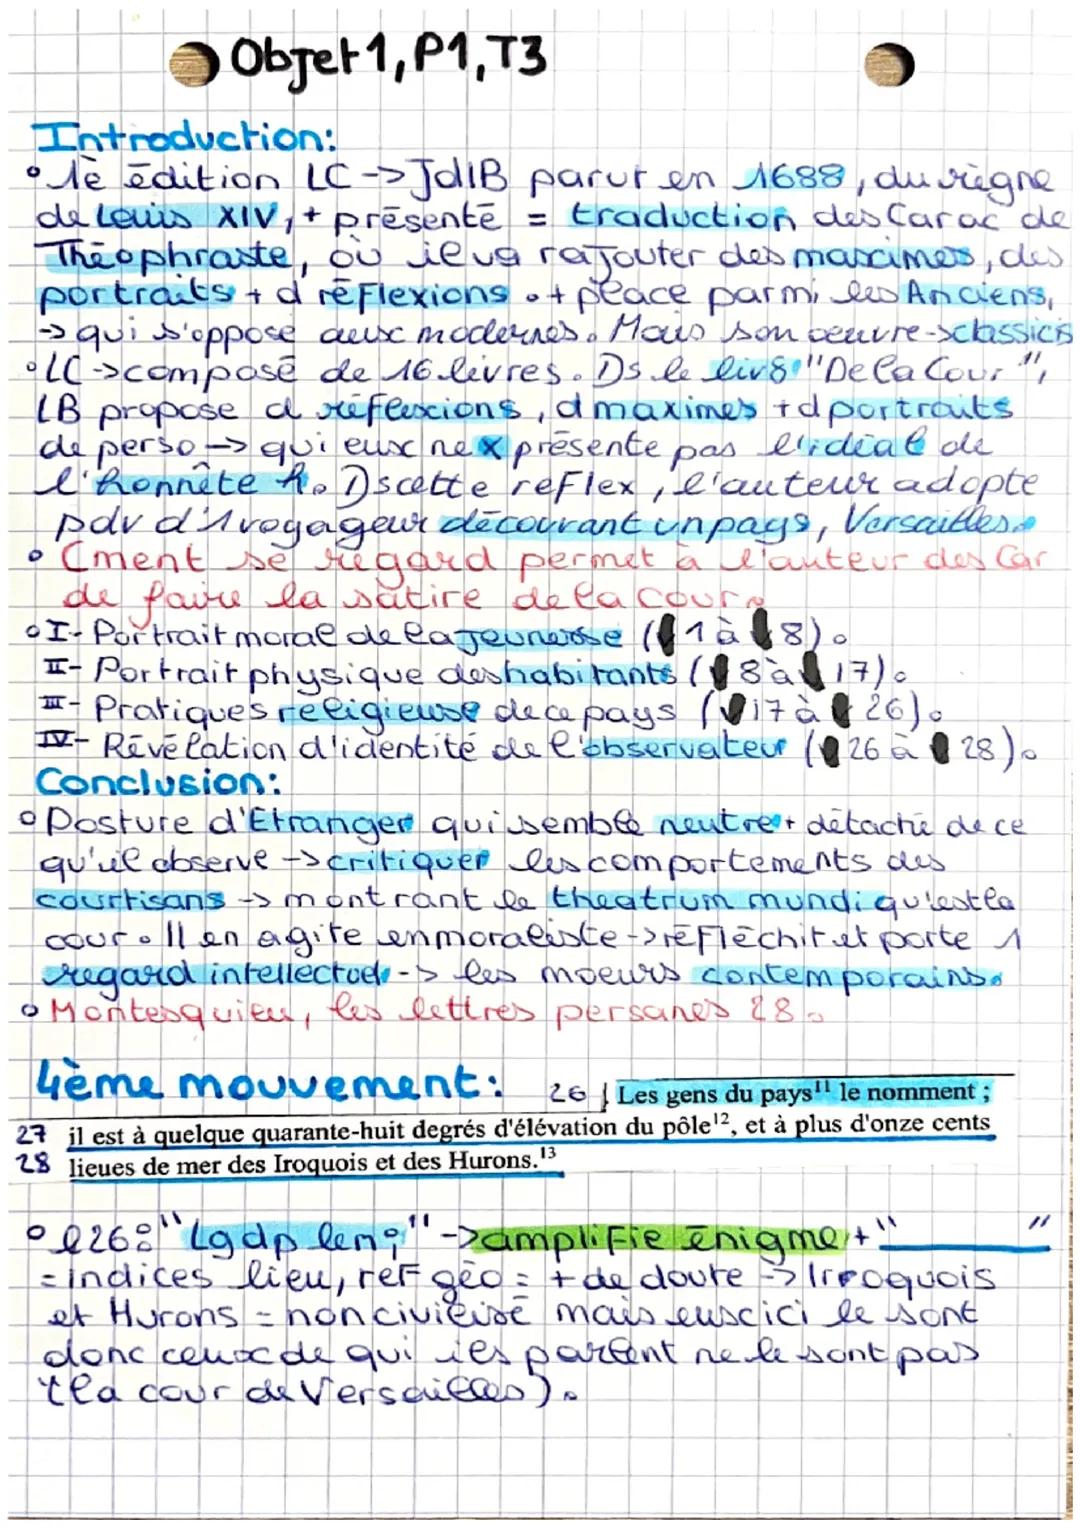 Objet 1, P1, T3
Introduction:
° 1è édition LC -> JdlB parut en 1688, du règne
de Louis XIV, + présenté = traduction des Carac de
Théophraste, où il va rajouter des maximes, des
portraits + d réflexions. + place parmi les Anciens,
-> qui s'oppose aux modernes. Mais son oeuvre -> classicis
° LC -> composé de 16 livres. Ds le liv 8 "De la Cour",
LB propose d réflexions, d maximes + d portraits
de perso -> qui eux ne x présente pas l'idéal de
l'honnête h. Ds cette reflex, l'auteur adopte
pdv d'1 voyageur découvrant un pays, Versailles.
° Cment se regard permet à l'auteur des Car
de faire la satire de la cour.
° I- Portrait moral de la jeunesse (1 à 8).
II- Portrait physique des habitants (8 à 17).
III- Pratiques religieuse de ce pays (17 à 26).
IV- Révélation d'identité de l'observateur (26 à 28).
Conclusion:
° Posture d'Etranger qui semble neutre + détaché de ce
qu'il observe -> critiquer les comportements des
courtisans -> montrant le theatrum mundi qu'est la
cour. Il en agite en moraliste -> réfléchit et porte 1
regard intellectuel -> les moeurs contemporains.
° Montesquieu, les lettres persanes 28.
4ème mouvement:
26 Les gens du pays¹¹ le nomment ;
27 il est à quelque quarante-huit degrés d'élévation du pôle¹², et à plus d'onze cents
28 lieues de mer des Iroquois et des Hurons.¹³
° l26: "Lgdp len;" -> amplifie énigme + " "
= indices lieu, ref géo = + de doute -> Iroquois
et Hurons = non civilisé mais eux ici le sont
donc ceux de qui ils parlent ne le sont pas
(la cour de Versailles).